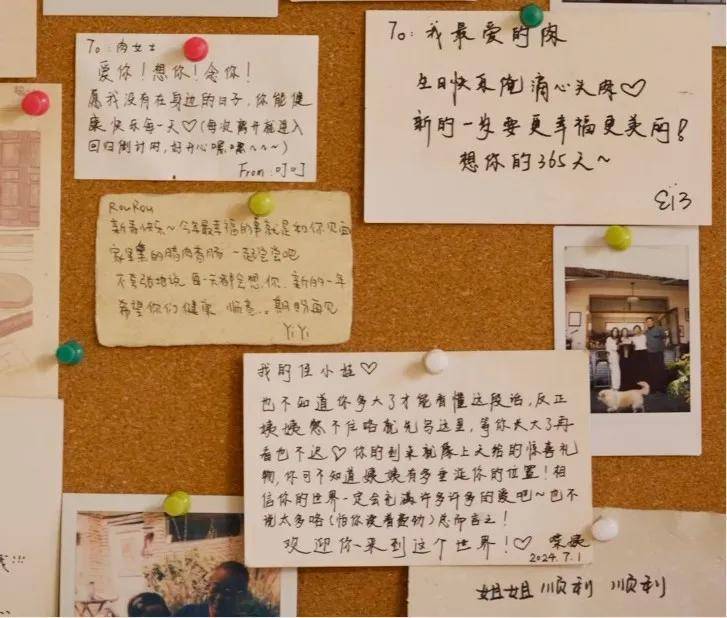 To：肉女士
爱你！想你！念你！
愿我没有在身边的日子，你能健
康快乐每一天♡(每次离开就进入
回归倒计时，好开心嘿嘿~~~)
From：叮叮
To：我最爱的肉
生日快乐俺滴心头肉♡
新的一岁要更幸福更美丽！
想你的365天~
RouRou
新春快乐~今年最幸福的事就是和你见面
家里的腊肉香肠 一起尝尝吧
不夸张地说 每一天都会想你. 新的一年
希望你们健康 惬意。。期盼再见
YiYi
我的任小姐♡
也不知道你多大了才能看懂这段话，反正
姨姨憋不住咯就先写这里，等你长大了再
看也不迟♡你的到来就像上天给的惊喜礼
物，你可不知道姨姨有多垂涎你的位置！相
信你的世界一定会充满许多许多的爱吧~也不
说太多咯(怕你读着费劲)总而言之！
欢迎你来到这个世界！♡
2024.7.1
姐姐顺利 顺利